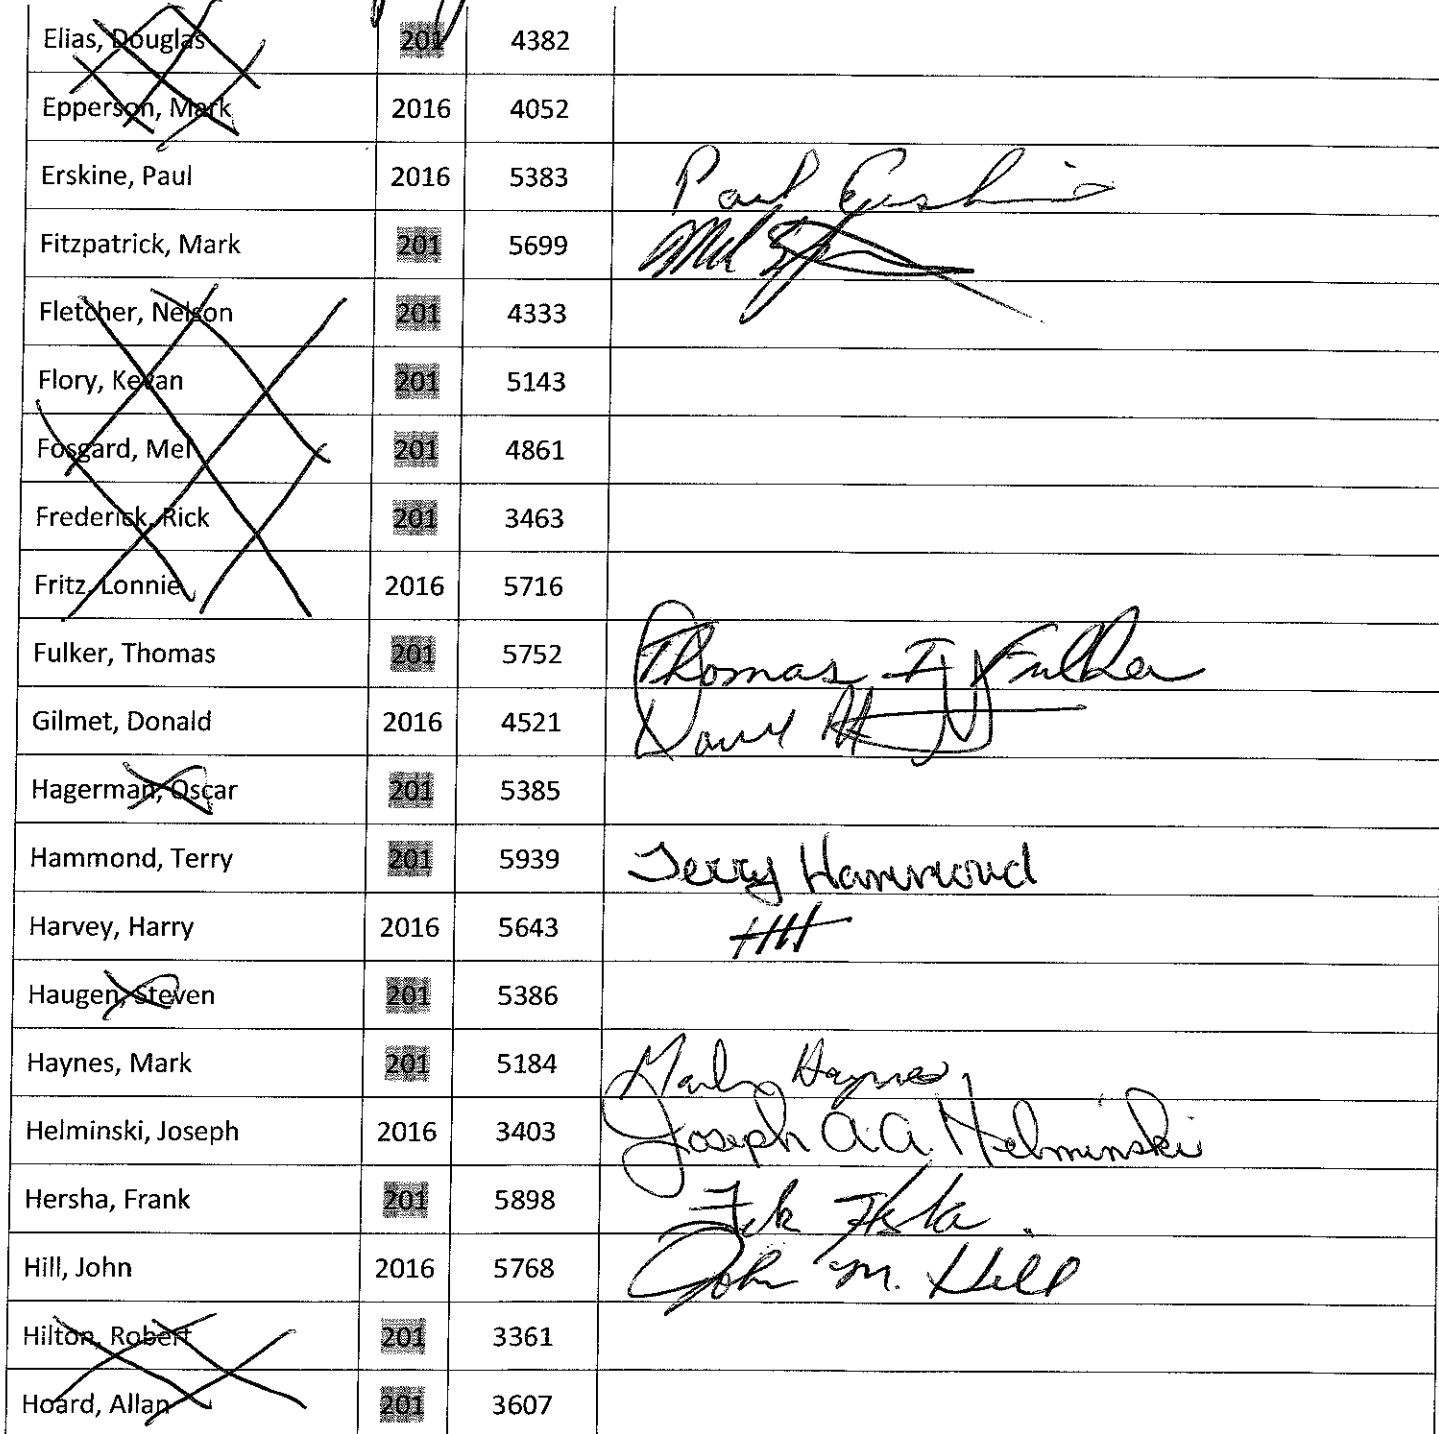 Elias, Douglas 201 4382
Epperson, Mark 2016 4052
Erskine, Paul 2016 5383 Paul Erskine
Fitzpatrick, Mark 201 5699
Fletcher, Nelson 201 4333
Flory, Kevan 201 5143
Fosgard, Mel 201 4861
Frederick, Rick 201 3463
Fritz, Lonnie 2016 5716
Fulker, Thomas 201 5752 Thomas J Fulker
Gilmet, Donald 2016 4521
Hagerman, Oscar 201 5385
Hammond, Terry 201 5939 Terry Hammond
Harvey, Harry 2016 5643 HH
Haugen, Steven 201 5386
Haynes, Mark 201 5184 Mark Haynes
Helminski, Joseph 2016 3403 Joseph A.A. Helminski
Hersha, Frank 201 5898
Hill, John 2016 5768 John M. Hill
Hilton, Robert 201 3361
Hoard, Allan 201 3607